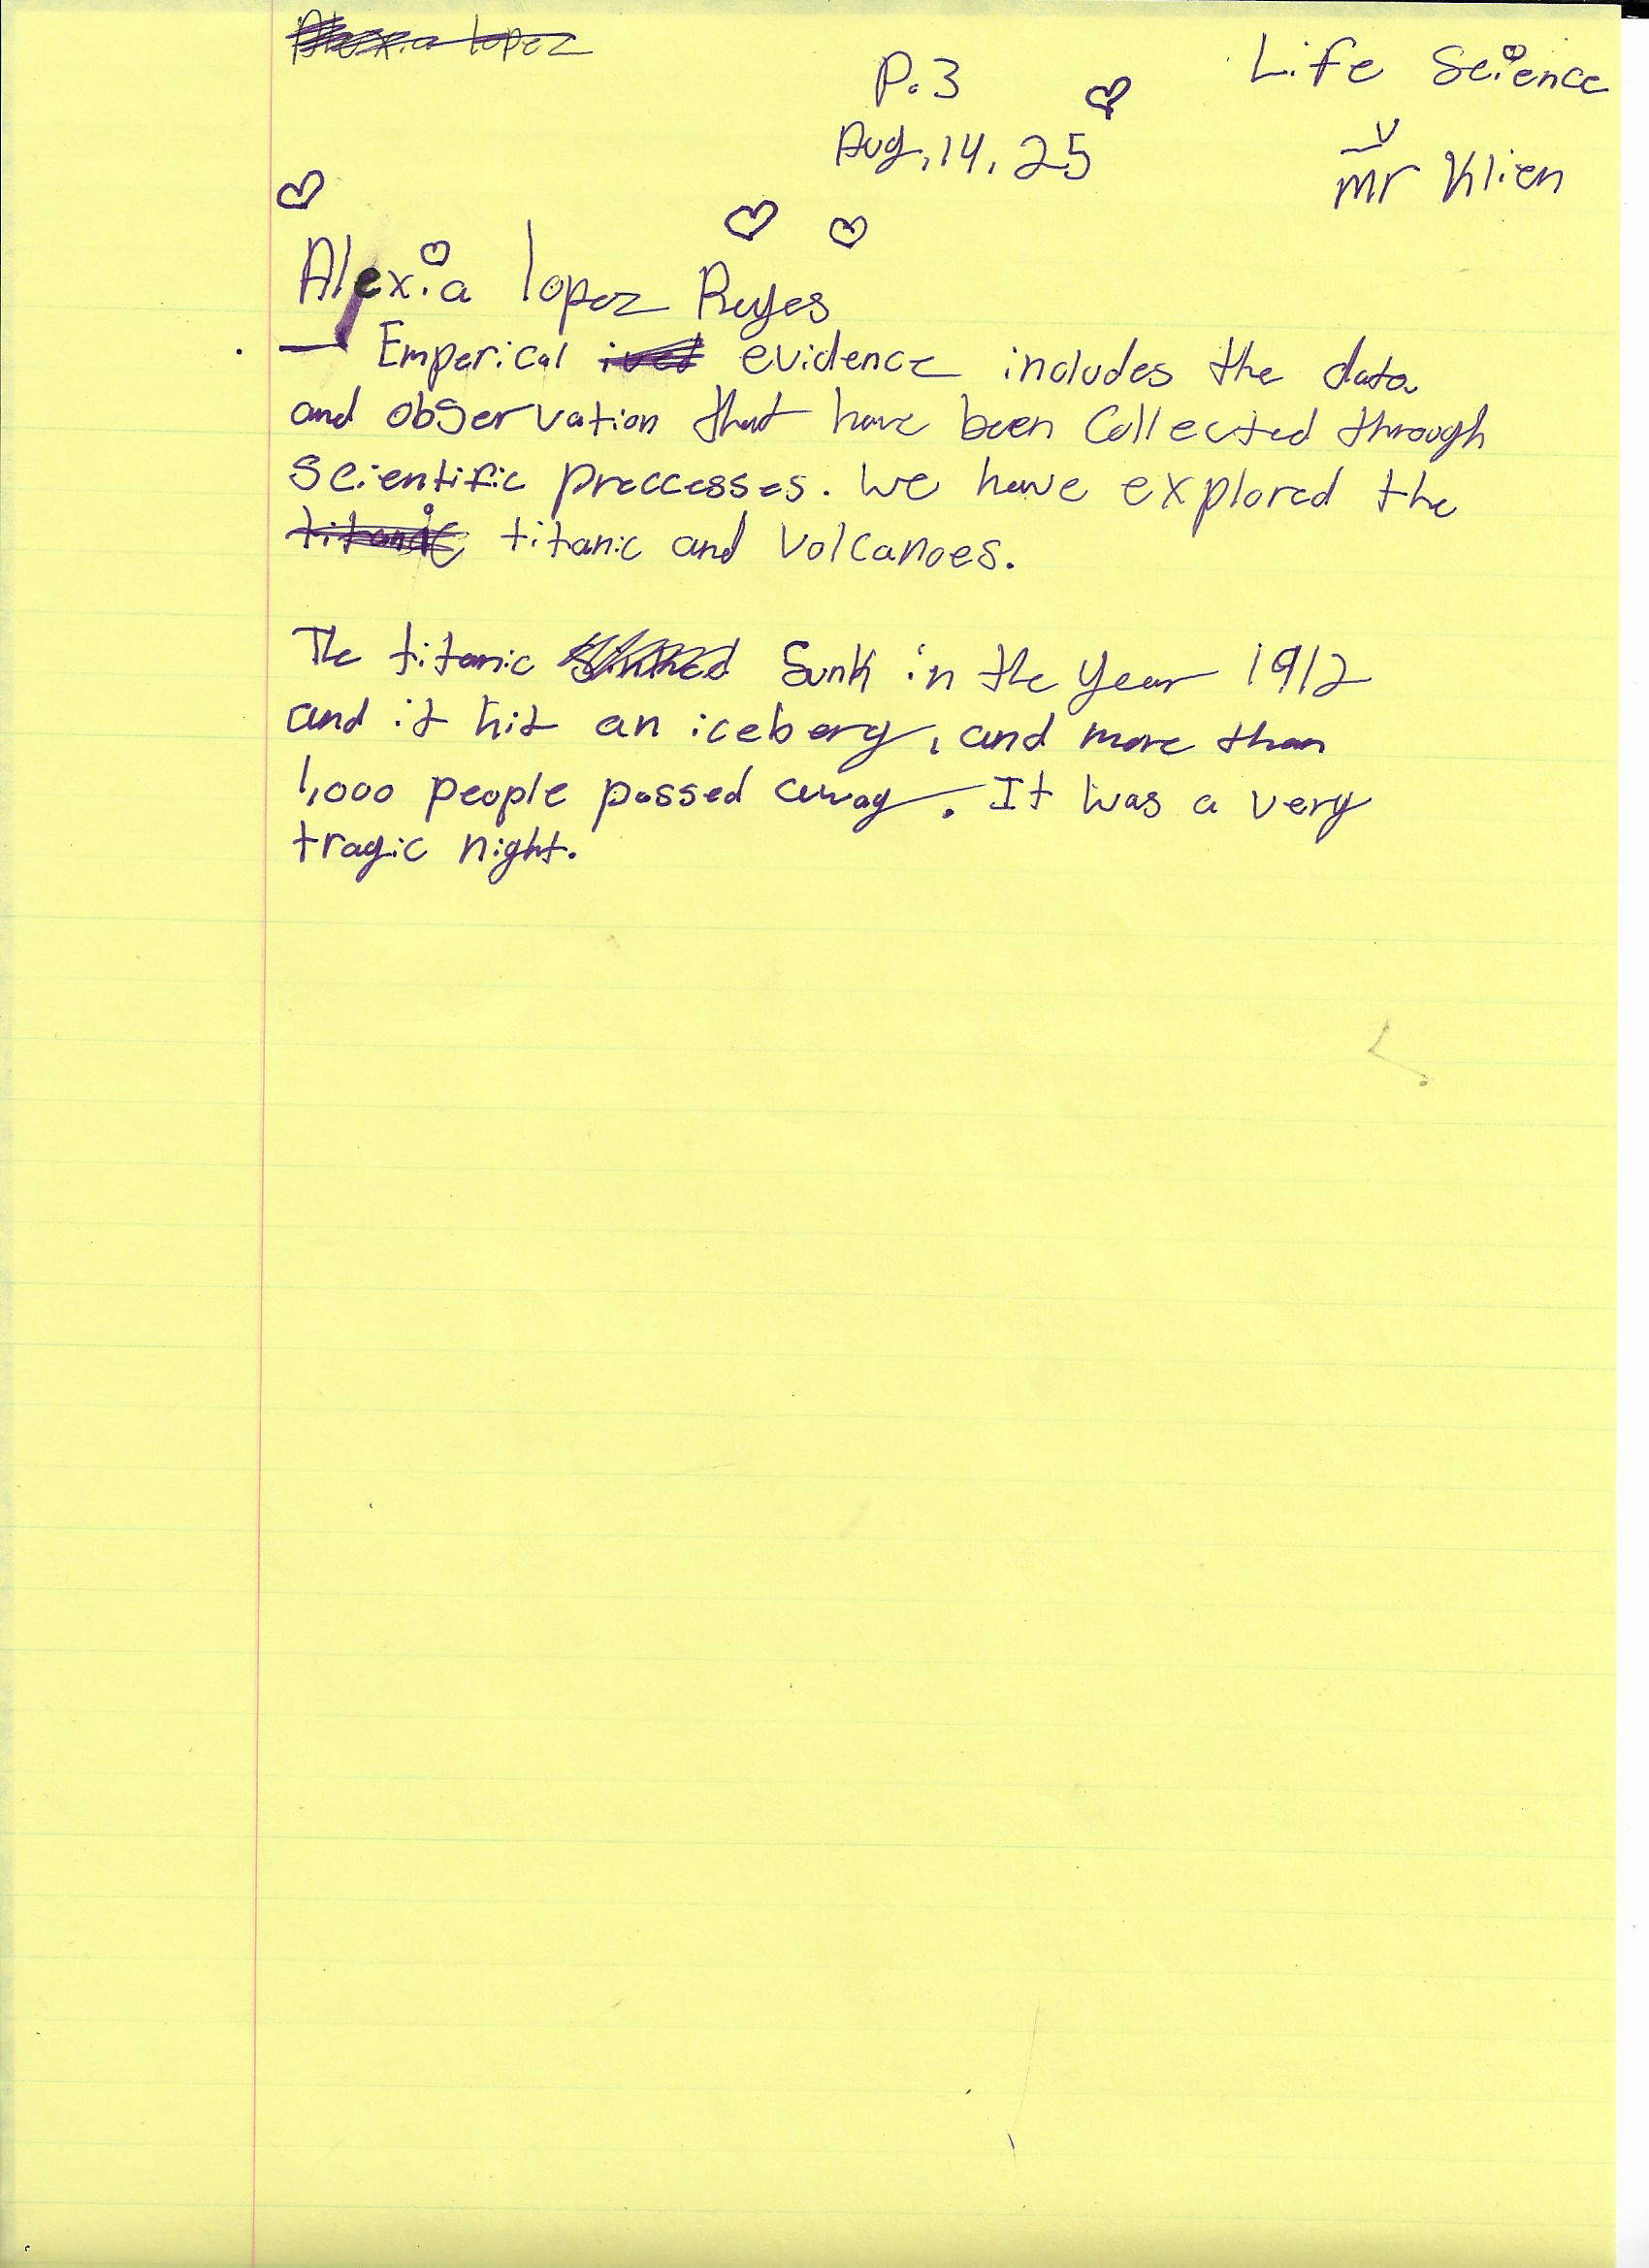 Alexia lopez
P.3
Life Science
Aug, 14, 25
mr Klien
Alexia lopez Reyes
— Emperical evidence includes the data
and observation that have been Collected through
Scientific preccesses. We have explored the
titanic titanic and Volcanoes.
The titanic Sinked Sunk in the year 1912
and it hit an iceberg, and more than
1,000 people passed away. It was a very
tragic night.